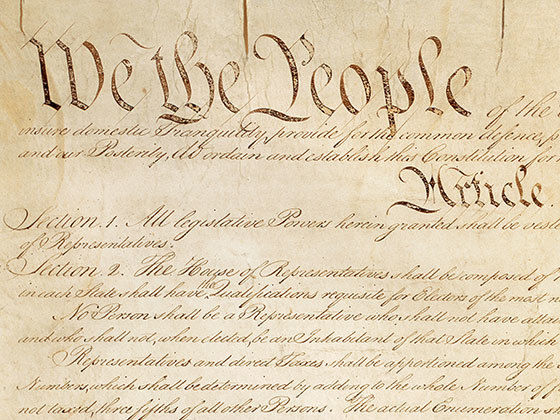 We the People of the
insure domestic Tranquility, provide for the common defence,
and our Posterity, do ordain and establish this Constitution for
Article.
Section. 1. All legislative Powers herein granted shall be veste
of Representatives.
Section. 2. The House of Representatives shall be composed of
in each State shall have the Qualifications requisite for Electors of the most n
No Person shall be a Representative who shall not have attai
and who shall not, when elected, be an Inhabitant of that State in which
Representatives and direct Taxes shall be apportioned among the
Numbers, which shall be determined by adding to the whole Number of f
not taxed, three fifths of all other Persons. The actual Enumeration